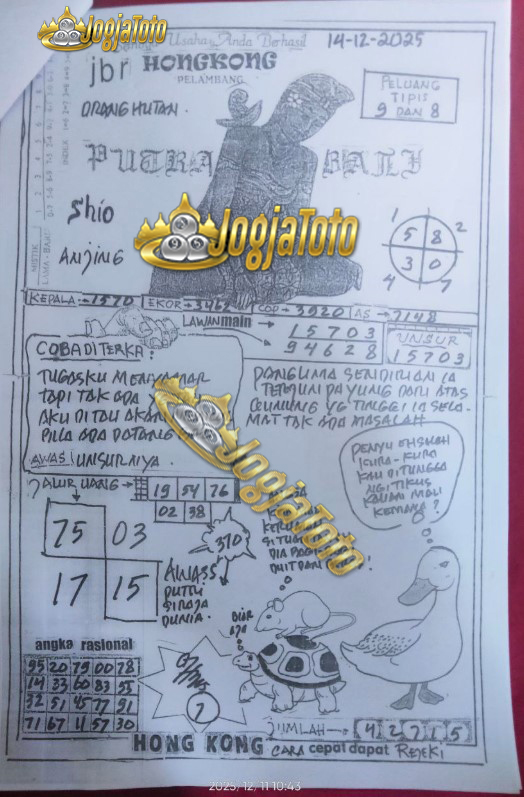 JogjaToto
Usaha Anda Berhasil
14-12-2025
jbr HONGKONG
PELAMBANG
ORANGHUTAN.
PELUANG
TIPIS
9 DAN 8
PUTRA BALI
Shio
ANJING
JogjaToto
1 2
5 8
3 0
4 7
KEPALA→1570 EKOR→3462 COP→3920 AS→7148
LAWAN main → 15703
94628
UNSUR
15703
COBA DITERKA:
TUGASKU
TAPI TAK ADA
AKU DI TAU AKAN
BILA ADA DATANG
AWAS! UNSURNIYA.
PANGLIMA SENDIRIAN IA
TERJUN PAYUNG DARI ATAS
GUNUNG YG TINGGI IA SELA-
MAT TAK ADA MASALAH
JogjaToto
KURA-KURA
KAU DITUNGGA
NGI TIKUS
KALIAN MAU
KEMANA?
JALUR UANG→ 19 54 76
02 38
75 03
17 15
370
AWASS
PUTRI
SIRAJA
DUNIA.
SI TUG
DIA BAGI
DUIT DAN
BIAR
AJA
angka rasional
95 20 79 00 78
14 33 60 83 55
32 51 45 77 91
71 67 11 57 30
7
JUMLAH→ 4 2 7 1 5
HONG KONG CARA cepat dapat REJEKI
2025/12/11 10:43